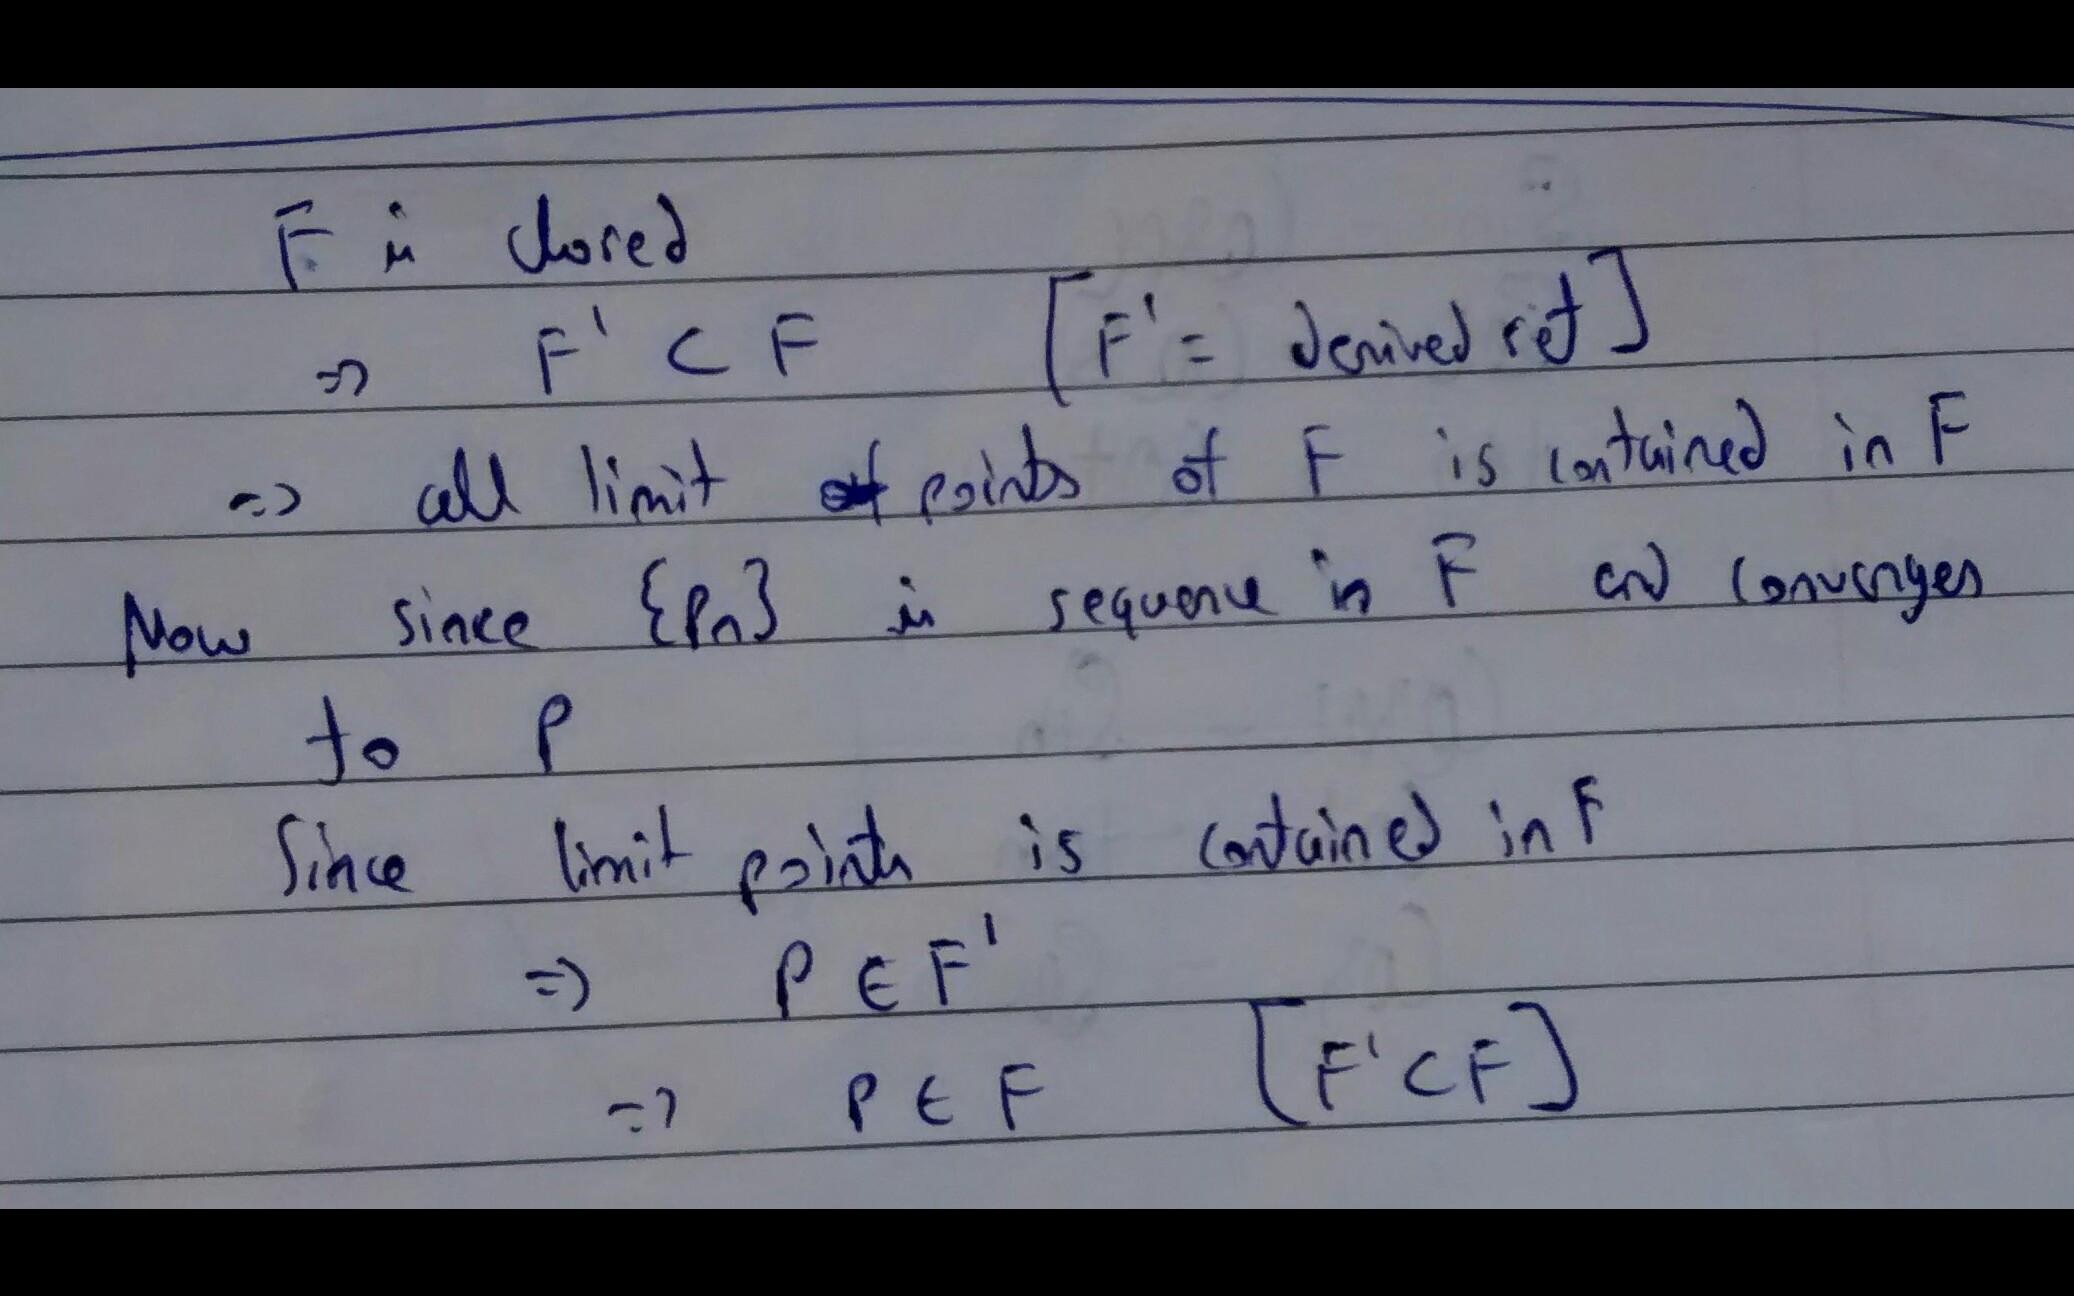 F is closed
=> F' ⊂ F [F' = derived set]
=> all limit points of F is contained in F
Now since {Pn} is sequence in F and converges
to P
Since limit points is contained in F
=> P ∈ F'
=> P ∈ F [F' ⊂ F]